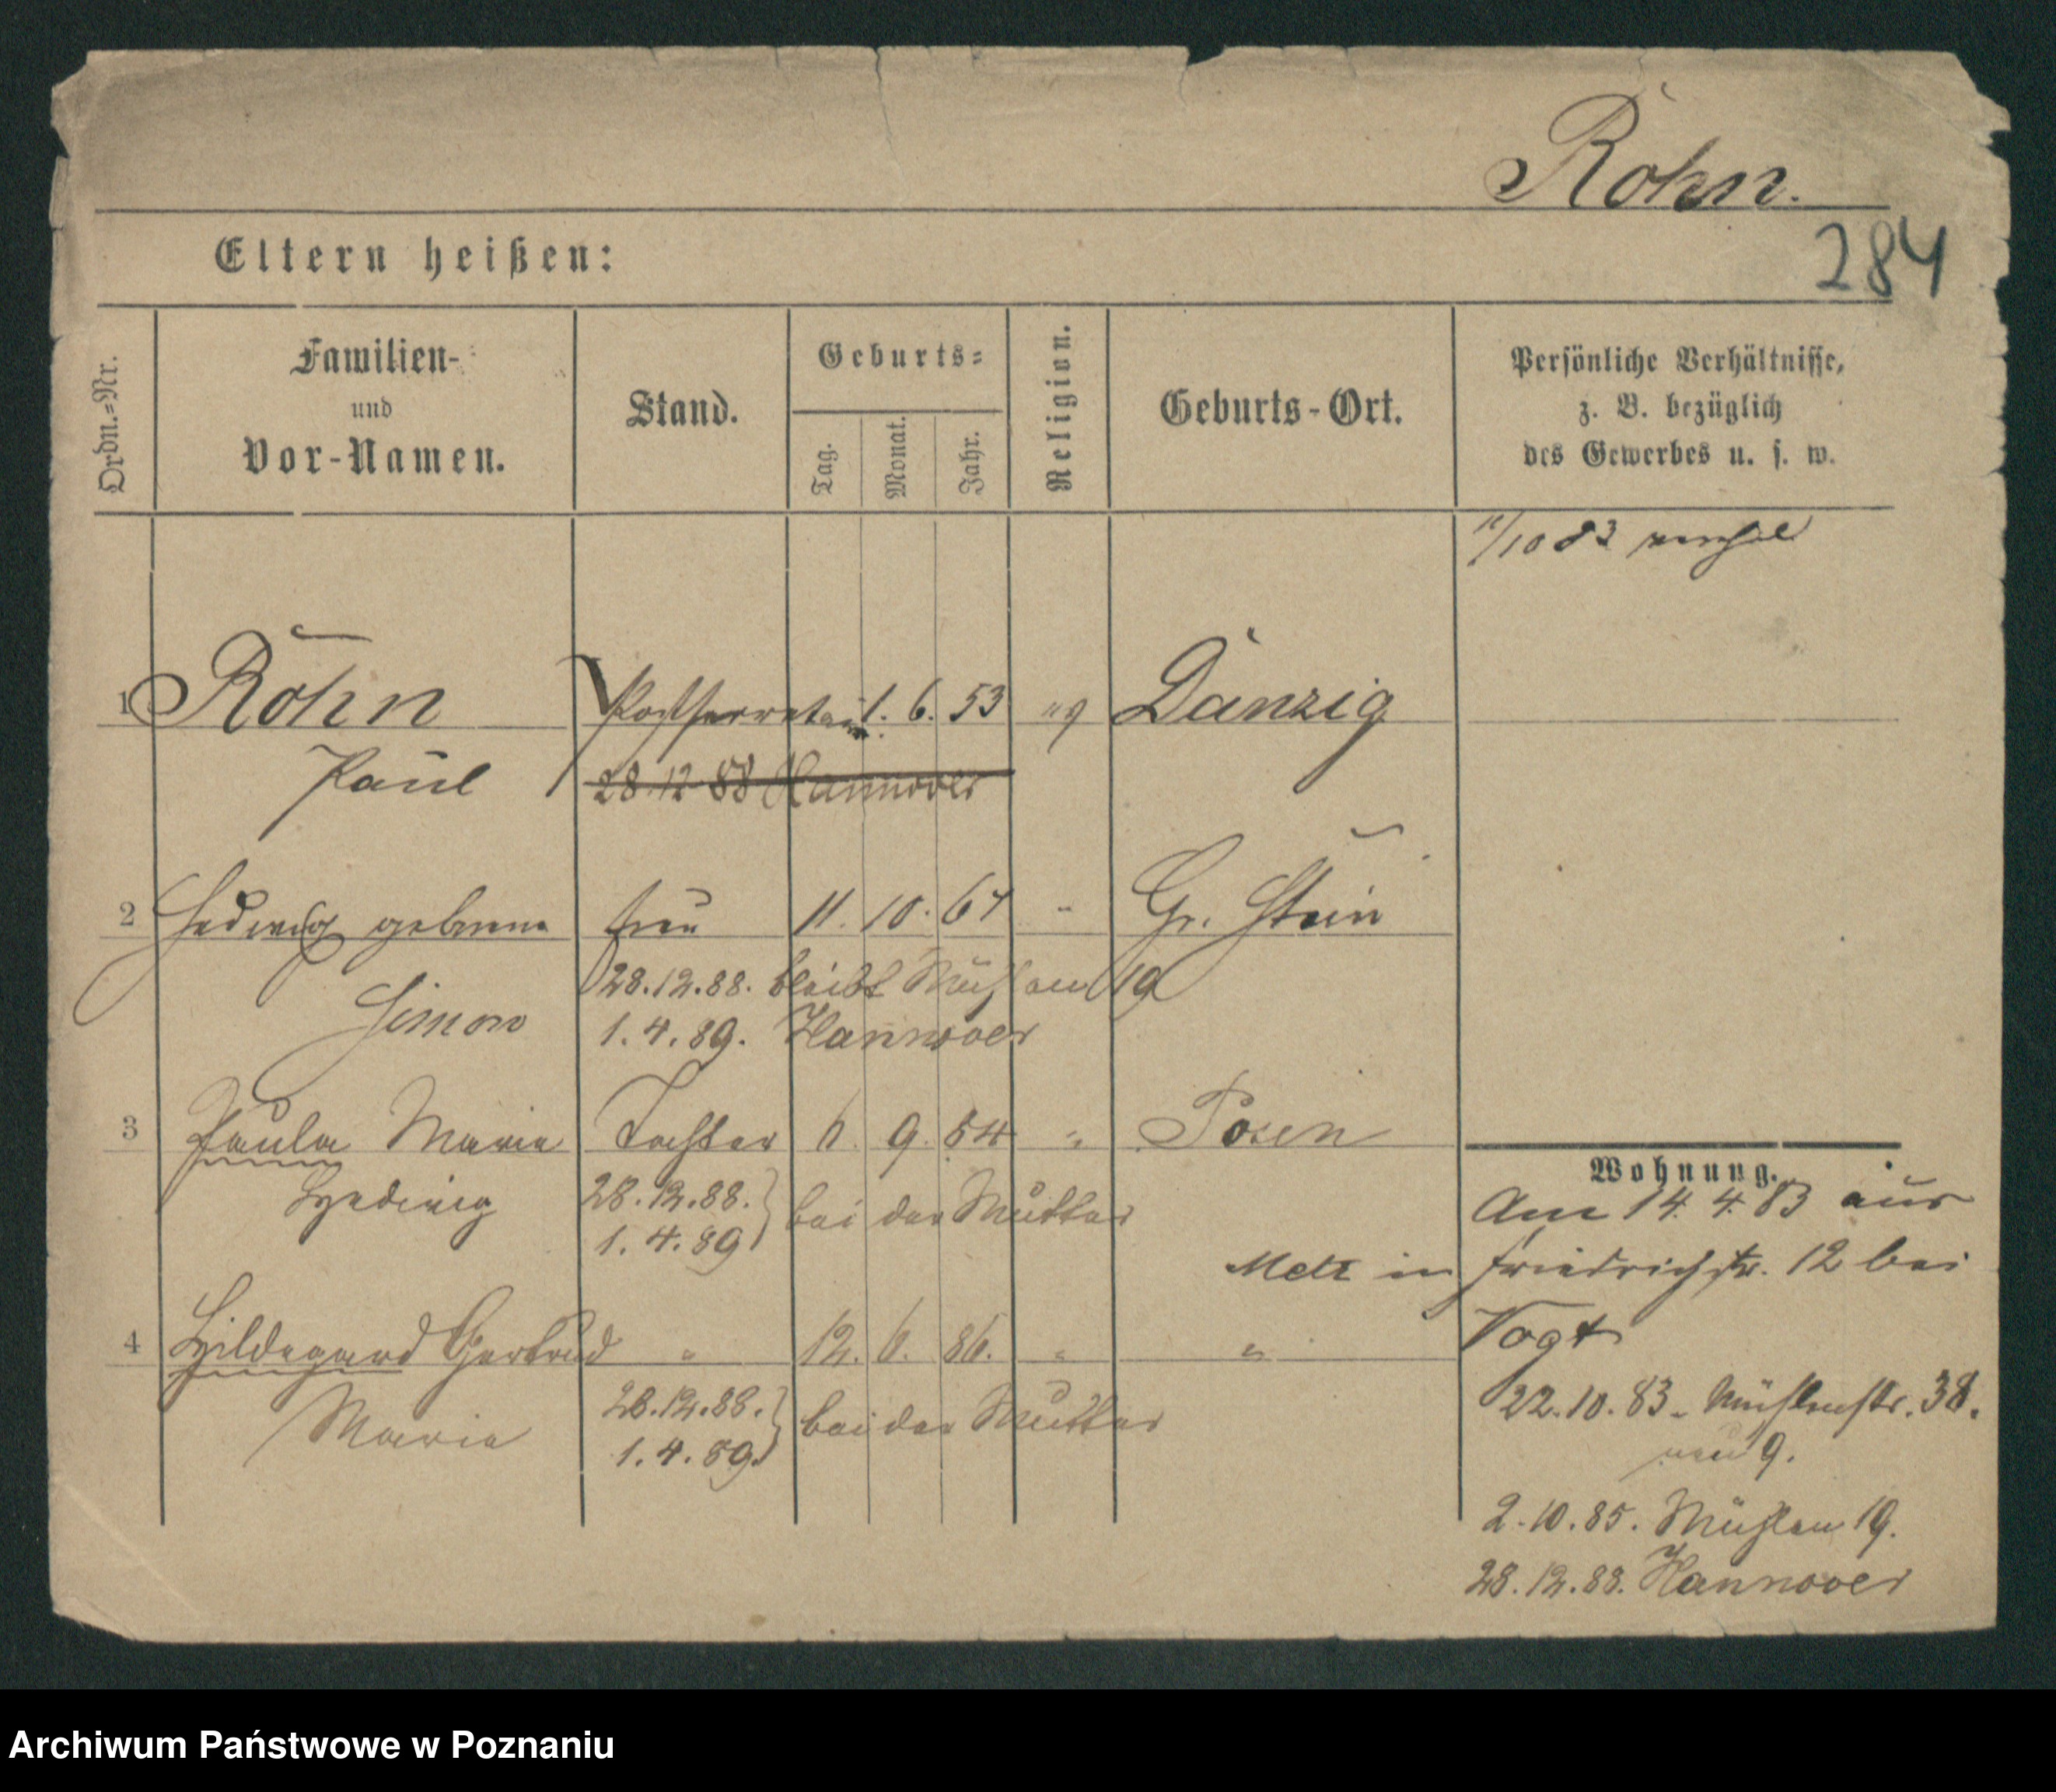 Röhn.
284
Eltern heißen:
Ordn.=Nr.
Familien-
und
Vor-Namen.
Stand.
Geburts=
Tag.
Monat.
Jahr.
Religion.
Geburts-Ort.
Persönliche Verhältnisse,
z. B. bezüglich
des Gewerbes u. s. w.
/10 83
1 Röhn Postsecretair 1. 6. 53 Danzig
Paul 28.12 88 Hannover
2 Hedwig geborene Frau 11. 10. 61 " Gr. Stein
28.12.88. bleibt Mühlen 19
Simon 1. 4. 89. Hannover
3 Paula Marie Tochter 6. 9. 84 " Posen
Hedwig 28.12.88. } bei der Mutter
1. 4. 89
Wohnung.
Am 14. 4. 83 aus
Metz in Friedrichstr. 12 bei
Vogt
4 Hildegard Gertrud " 12. 6. 86. " "
Marie 28.12.88. } bei der Mutter
1. 4. 89.
22.10.83. Mühlenstr. 38.
neu 9.
2.10.85. Mühlen 19.
28.12.88. Hannover
Archiwum Państwowe w Poznaniu